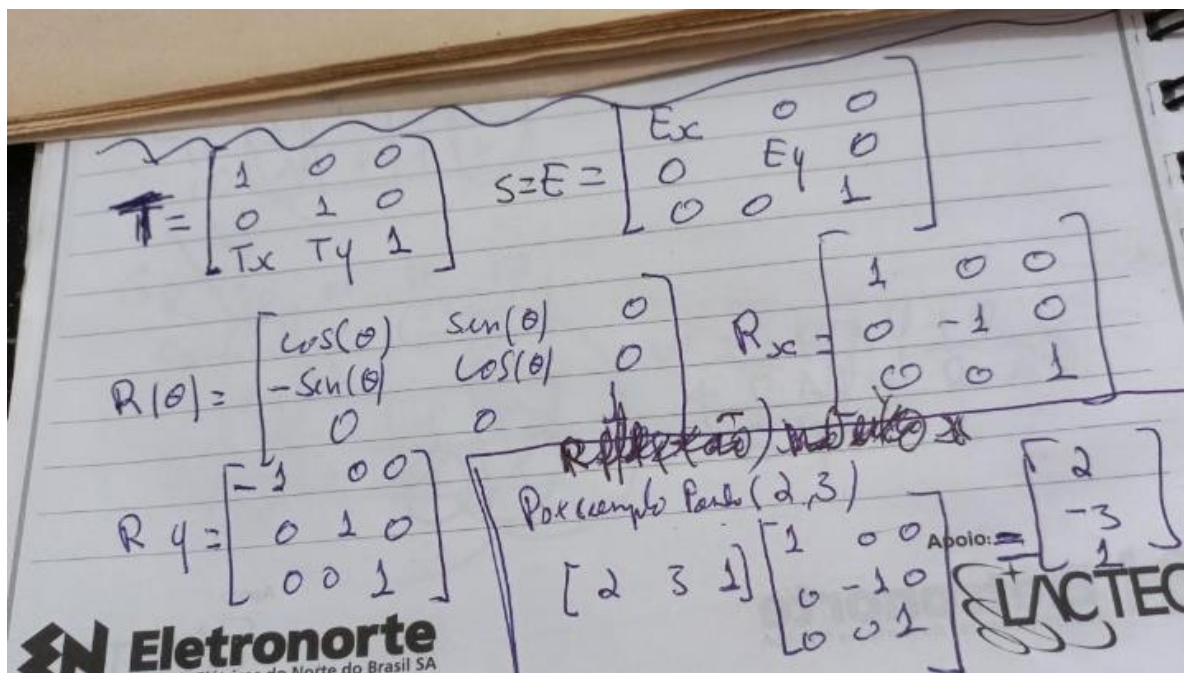 T = [ 1 0 0
0 1 0
Tx Ty 1 ]
S=E= [ Ex 0 0
0 Ey 0
0 0 1 ]
R(θ)= [ cos(θ) sen(θ) 0
-sen(θ) cos(θ) 0
0 0 1 ]
Rx = [ 1 0 0
0 -1 0
0 0 1 ]
Ry = [ -1 0 0
0 1 0
0 0 1 ]
Por exemplo Ponto (2,3)
[2 3 1] [ 1 0 0
0 -1 0
0 0 1 ] = [ 2
-3
1 ]
Apoio:
LACTEC
EN Eletronorte
do Norte do Brasil SA